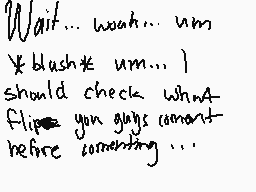 Wait... woah... um
*blush* um... I
should check what
flip you guys coment
before comenting...